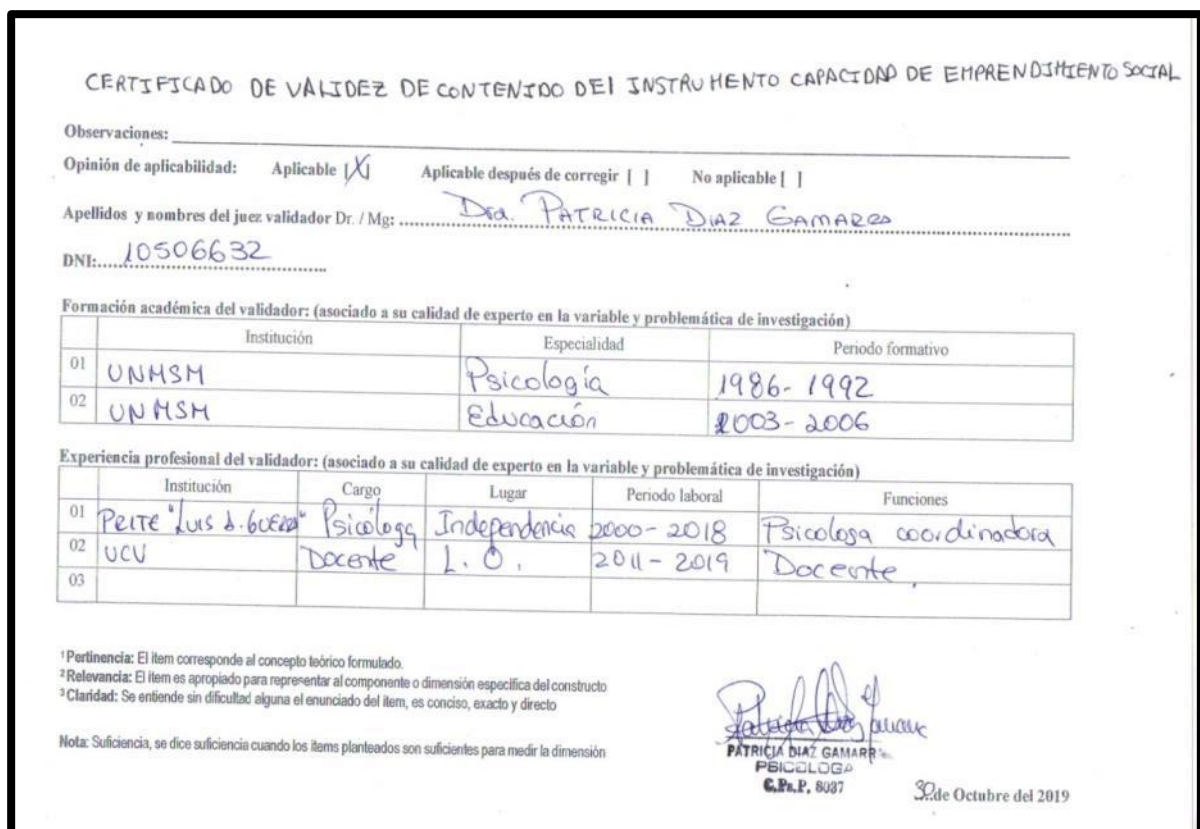 CERTIFICADO DE VALIDEZ DE CONTENIDO DEl INSTRUMENTO CAPACIDAD DE EMPRENDIMIENTO SOCIAL
Observaciones:
Opinión de aplicabilidad: Aplicable [X] Aplicable después de corregir [ ] No aplicable [ ]
Apellidos y nombres del juez validador Dr. / Mg: Dra. PATRICIA DIAZ GAMARRA
DNI: 10506632
Formación académica del validador: (asociado a su calidad de experto en la variable y problemática de investigación)
Institución Especialidad Periodo formativo
01 UNMSM Psicología 1986-1992
02 UNMSM Educación 2003-2006
Experiencia profesional del validador: (asociado a su calidad de experto en la variable y problemática de investigación)
Institución Cargo Lugar Periodo laboral Funciones
01 Psicóloga Independencia 2000-2018 Psicologa coordinadora
02 UCV Docente L.O. 2011-2019 Docente
03
¹Pertinencia: El ítem corresponde al concepto teórico formulado.
²Relevancia: El ítem es apropiado para representar al componente o dimensión específica del constructo
³Claridad: Se entiende sin dificultad alguna el enunciado del ítem, es conciso, exacto y directo
Nota: Suficiencia, se dice suficiencia cuando los ítems planteados son suficientes para medir la dimensión
PATRICIA DIAZ GAMARRA
PSICOLOGA
C.Ps.P. 8037
30 de Octubre del 2019